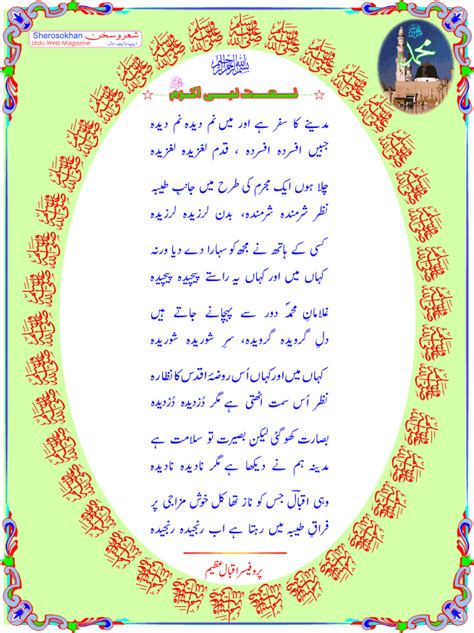 Sherosokhan
Urdu Web Magazine
شعر و سخن
محمد
بسم اللہ الرحمن الرحیم
نعت نبی اکرم
مدینے کا سفر ہے اور میں نم دیدہ نم دیدہ
جبیں افسردہ افسردہ ، قدم لغزیدہ لغزیدہ
چلا ہوں ایک مجرم کی طرح میں جانبِ طیبہ
نظر شرمندہ شرمندہ، بدن لرزیدہ لرزیدہ
کسی کے ہاتھ نے مجھ کو سہارا دے دیا ورنہ
کہاں میں اور کہاں یہ راستے پیچیدہ پیچیدہ
غلامانِ محمدؐ دور سے پہچانے جاتے ہیں
دلِ گرویدہ گرویدہ، سرِ شوریدہ شوریدہ
کہاں میں اور کہاں اُس روضۂ اقدس کا نظارہ
نظر اُس سمت اٹھتی ہے مگر دُزدیدہ دُزدیدہ
بصارت کھو گئی لیکن بصیرت تو سلامت ہے
مدینہ ہم نے دیکھا ہے مگر نادیدہ نادیدہ
وہی اقبالؔ جس کو ناز تھا کل خوش مزاجی پر
فراقِ طیبہ میں رہتا ہے اب رنجیدہ رنجیدہ
پروفیسر اقبال عظیم